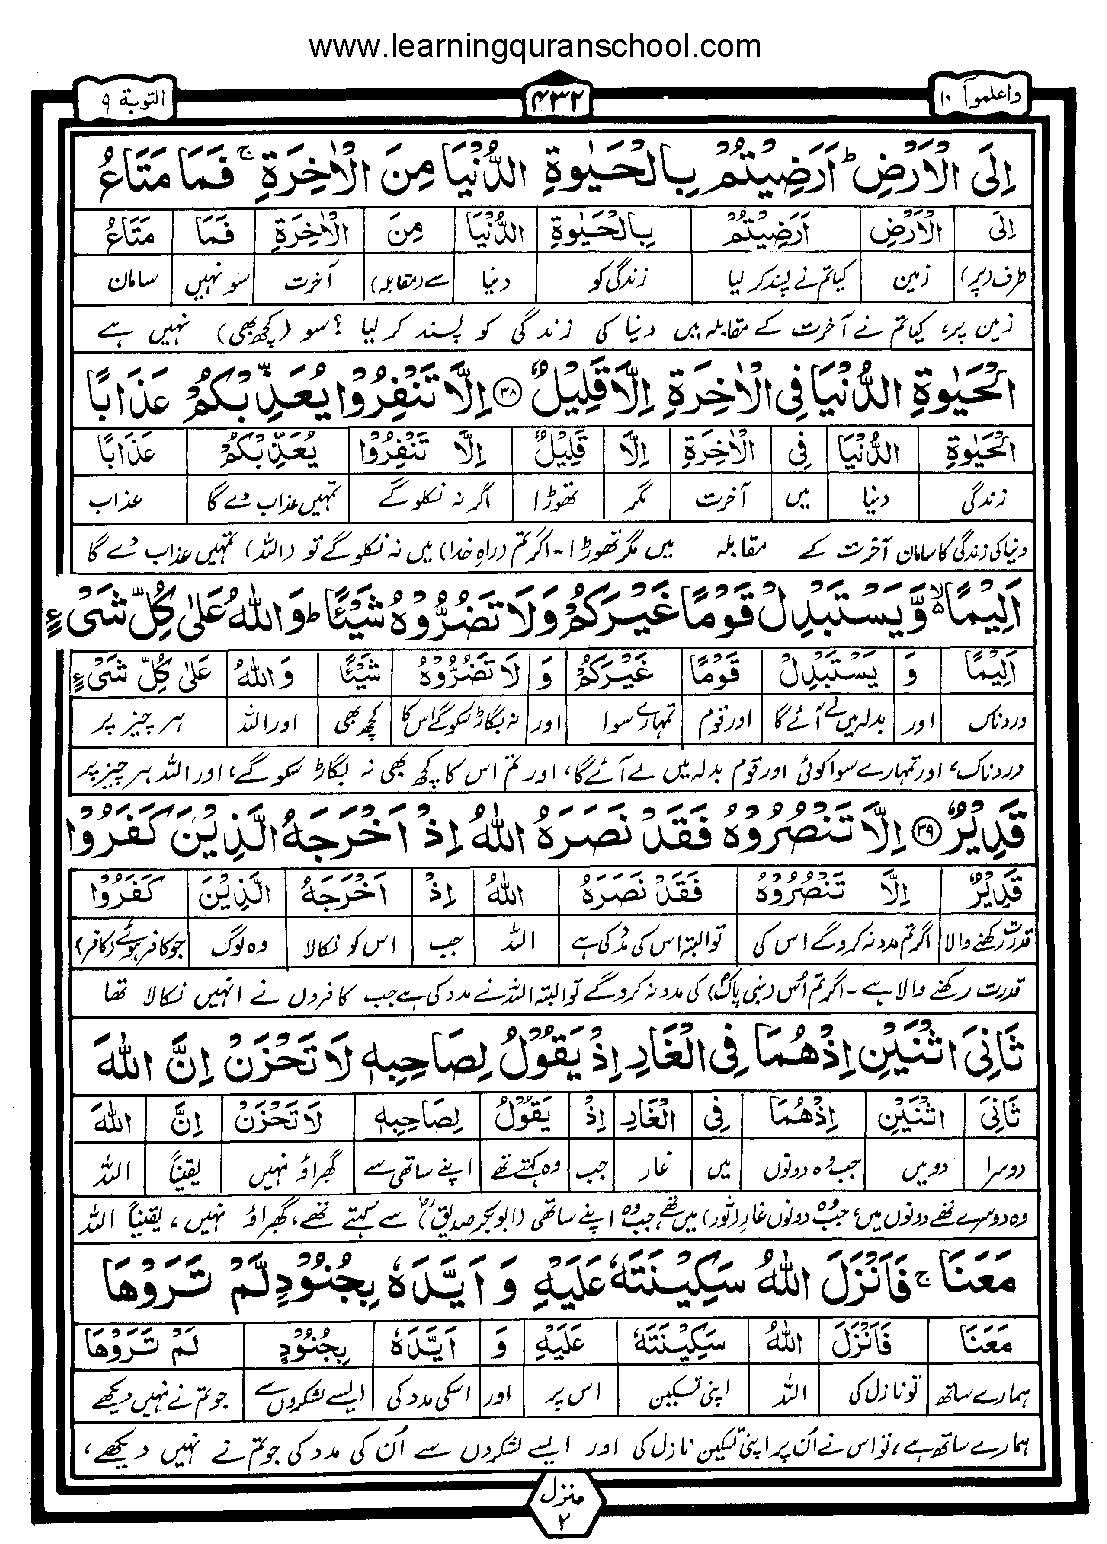 www.learningquranschool.com
واعلموآ ١٠
۴۳۲
التوبة ٩
اِلَى الْاَرْضِ ؕ اَرَضِيْتُمْ بِالْحَيٰوةِ الدُّنْيَا مِنَ الْاٰخِرَةِ ۚ فَمَا مَتَاعُ
اِلَى | الْاَرْضِ | اَرَضِيْتُمْ | بِالْحَيٰوةِ | الدُّنْيَا | مِنَ | الْاٰخِرَةِ | فَمَا | مَتَاعُ
طرف (پر) | زمین | کیا تم نے پسند کر لیا | زندگی کو | دنیا | سے (مقابلہ) | آخرت | سو نہیں | سامان
زمین پر، کیا تم نے آخرت کے مقابلہ میں دنیا کی زندگی کو پسند کر لیا ؟ سو (کچھ بھی) نہیں ہے
الْحَيٰوةِ الدُّنْيَا فِى الْاٰخِرَةِ اِلَّا قَلِيْلٌ ﴿٣٨﴾ اِلَّا تَنْفِرُوْا يُعَذِّبْكُمْ عَذَابًا
الْحَيٰوةِ | الدُّنْيَا | فِى | الْاٰخِرَةِ | اِلَّا | قَلِيْلٌ | اِلَّا تَنْفِرُوْا | يُعَذِّبْكُمْ | عَذَابًا
زندگی | دنیا | میں | آخرت | مگر | تھوڑا | اگر نہ نکلو گے | تمہیں عذاب دے گا | عذاب
دنیا کی زندگی کا سامان آخرت کے مقابلہ میں مگر تھوڑا - اگر تم (راہِ خدا) میں نہ نکلو گے تو (اللہ) تمہیں عذاب دے گا
اَلِيْمًا ۙ وَّيَسْتَبْدِلْ قَوْمًا غَيْرَكُمْ وَلَا تَضُرُّوْهُ شَيْئًا ؕ وَاللّٰهُ عَلٰى كُلِّ شَىْءٍ
اَلِيْمًا | وَ | يَسْتَبْدِلْ | قَوْمًا | غَيْرَكُمْ | وَ | لَا تَضُرُّوْهُ | شَيْئًا | وَاللّٰهُ | عَلٰى كُلِّ شَىْءٍ
دردناک | اور | بدلہ میں لے آئے گا | اور قوم | تمہارے سوا | اور | نہ بگاڑ سکو گے اس کا | کچھ بھی | اور اللہ | ہر چیز پر
دردناک، اور تمہارے سوا کوئی اور قوم بدلہ میں لے آئے گا، اور تم اس کا کچھ بھی نہ بگاڑ سکو گے، اور اللہ ہر چیز پر
قَدِيْرٌ ﴿٣٩﴾ اِلَّا تَنْصُرُوْهُ فَقَدْ نَصَرَهُ اللّٰهُ اِذْ اَخْرَجَهُ الَّذِيْنَ كَفَرُوْا
قَدِيْرٌ | اِلَّا تَنْصُرُوْهُ | فَقَدْ نَصَرَهُ | اللّٰهُ | اِذْ | اَخْرَجَهُ | الَّذِيْنَ | كَفَرُوْا
قدرت رکھنے والا | اگر تم مدد نہ کرو گے اس کی | تو البتہ اس کی مدد کی ہے | اللہ | جب | اس کو نکالا | وہ لوگ | جو کافر ہوئے (کافر)
قدرت رکھنے والا ہے - اگر تم اُس (نبی پاک) کی مدد نہ کرو گے تو البتہ اللہ نے مدد کی ہے جب کافروں نے انہیں نکالا تھا
ثَانِىَ اثْنَيْنِ اِذْ هُمَا فِى الْغَارِ اِذْ يَقُوْلُ لِصَاحِبِهٖ لَا تَحْزَنْ اِنَّ اللّٰهَ
ثَانِىَ | اثْنَيْنِ | اِذْ هُمَا | فِى | الْغَارِ | اِذْ | يَقُوْلُ | لِصَاحِبِهٖ | لَا تَحْزَنْ | اِنَّ | اللّٰهَ
دوسرا | دو میں | جب وہ دونوں | میں | غار | جب | وہ کہتے تھے | اپنے ساتھی سے | گھبراؤ نہیں | یقیناً | اللہ
وہ دوسرے تھے دونوں میں، جب وہ دونوں غارِ (ثور) میں تھے، جب وہ اپنے ساتھی (ابوبکر صدیقؓ) سے کہتے تھے، گھبراؤ نہیں، یقیناً اللہ
مَعَنَا ۚ فَاَنْزَلَ اللّٰهُ سَكِيْنَتَهٗ عَلَيْهِ وَ اَيَّدَهٗ بِجُنُوْدٍ لَّمْ تَرَوْهَا
مَعَنَا | فَاَنْزَلَ | اللّٰهُ | سَكِيْنَتَهٗ | عَلَيْهِ | وَ | اَيَّدَهٗ | بِجُنُوْدٍ | لَمْ تَرَوْهَا
ہمارے ساتھ | تو نازل کی | اللہ | اپنی تسکین | اس پر | اور | اسکی مدد کی | ایسے لشکروں سے | جو تم نے نہیں دیکھے
ہمارے ساتھ ہے، تو اس نے اُن پر اپنی تسکین نازل کی اور ایسے لشکروں سے اُن کی مدد کی جو تم نے نہیں دیکھے،
منزل
۲